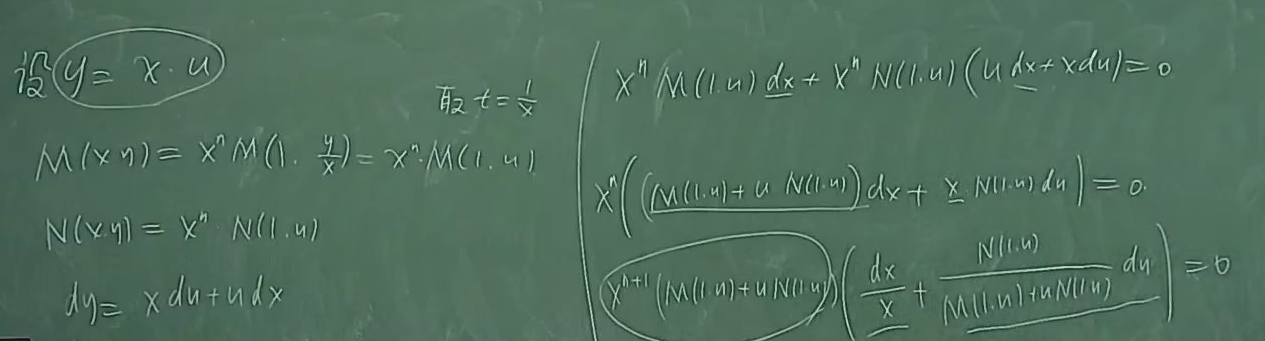 设 y = x · u
取 t = 1/x
M(x y) = xⁿ M(1. y/x) = xⁿ · M(1. u)
N(x y) = xⁿ · N(1. u)
dy = x du + u dx
xⁿ M(1.u) dx + xⁿ N(1.u) (u dx + x du) = 0
xⁿ ((M(1.u) + u N(1.u)) dx + x N(1.u) du) = 0.
xⁿ⁺¹ (M(1.u) + u N(1.u)) (dx/x + N(1.u)/(M(1.u) + u N(1.u)) du) = 0